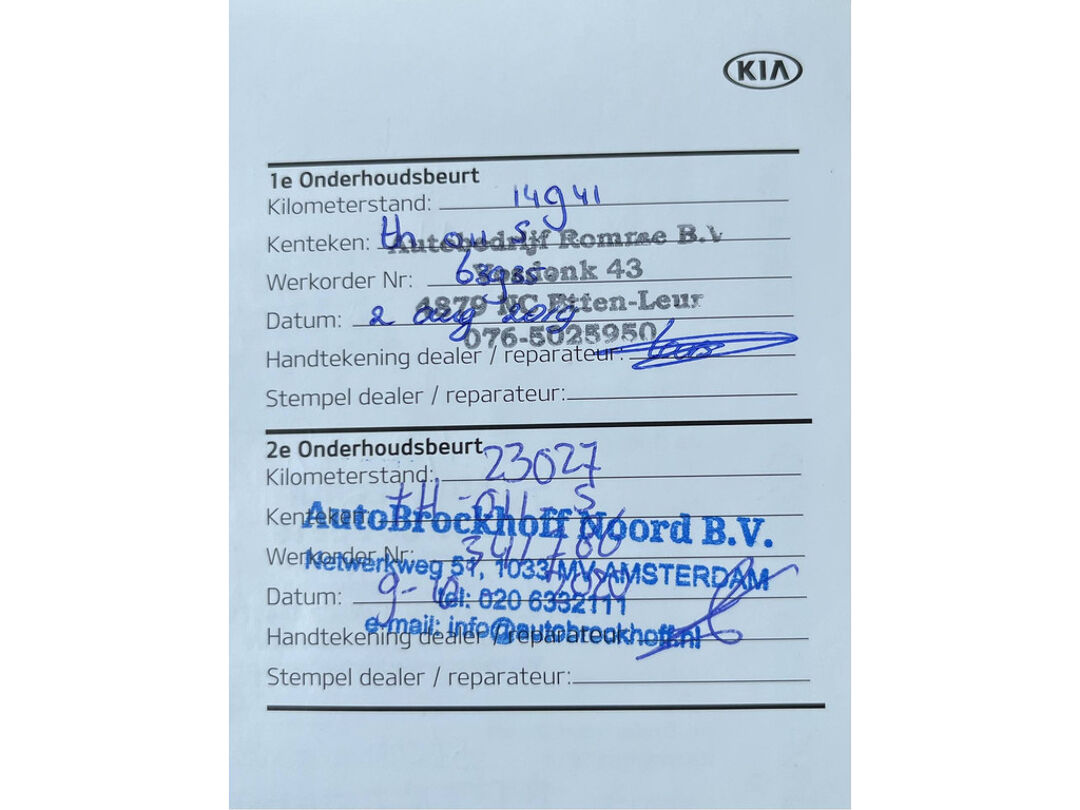 KIA
1e Onderhoudsbeurt
Kilometerstand: 14941
Kenteken: th
Autobedrijf Romme B.V
Werkorder Nr:
Vosdonk 43
4879 NC Etten-Leur
Datum: 2 aug 2019
076-5025950
Handtekening dealer / reparateur:
Stempel dealer / reparateur:
2e Onderhoudsbeurt
Kilometerstand: 23027
Kenteken: tH - S
AutoBrockhoff Noord B.V.
Werkorder Nr:
Netwerkweg 51, 1033 MV AMSTERDAM
Datum: 9-10 2020
tel: 020 6332111
e-mail: info@autobrockhoff.nl
Handtekening dealer / reparateur:
Stempel dealer / reparateur: